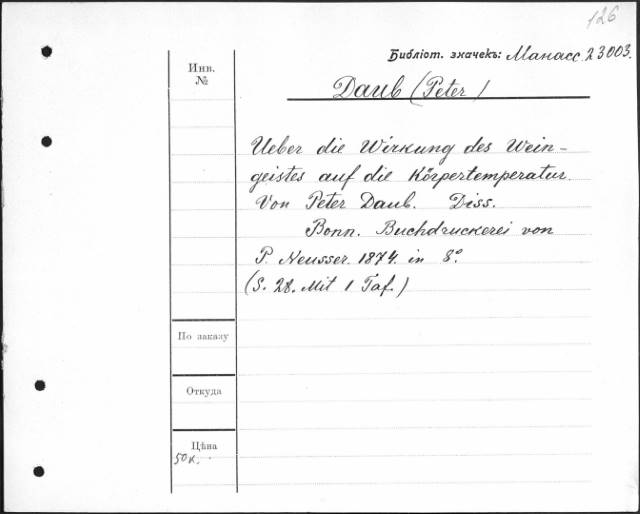 126
Библіот. значекъ: Манасс. 23003.
Инв.
№
Daub (Peter)
Ueber die Wirkung des Wein-
geistes auf die Körpertemperatur.
Von Peter Daub. Diss.
Bonn. Buchdruckerei von
P. Neusser. 1874. in 8°.
(S. 28. Mit 1 Taf.)
По заказу
Откуда
Цѣна
50 к.